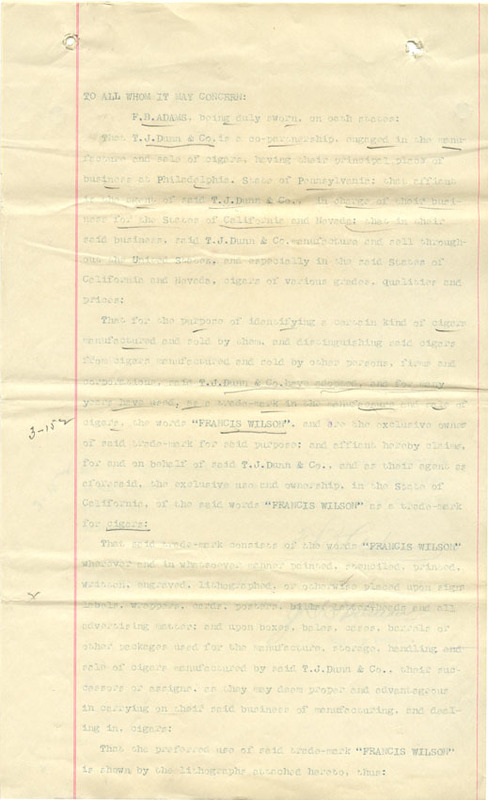 TO ALL WHOM IT MAY CONCERN:
F.B.ADAMS, being duly sworn, on oath states:
That T.J.Dunn & Co. is a co-partnership, engaged in the manu-
facture and sale of cigars, having their principal place of
business at Philadelphia, State of Pennsylvania; that affiant
is the agent of said T.J.Dunn & Co., in charge of their busi-
ness for the States of California and Nevada; that in their
said business, said T.J.Dunn & Co. manufacture and sell through-
out the United States, and especially in the said States of
California and Nevada, cigars of various grades, qualities and
prices;
That for the purpose of identifying a certain kind of cigars
manufactured and sold by them, and distinguishing said cigars
from cigars manufactured and sold by other persons, firms and
corporations, said T.J.Dunn & Co. have adopted, and for many
years have used, as a trade-mark in the manufacture and sale of
3-152
cigars, the words "FRANCIS WILSON", and are the exclusive owner
of said trade-mark for said purpose; and affiant hereby claims,
for and on behalf of said T.J.Dunn & Co., and as their agent as
aforesaid, the exclusive use and ownership, in the State of
California, of the said words "FRANCIS WILSON" as a trade-mark
for cigars:
That said trade-mark consists of the words "FRANCIS WILSON"
whenever and in whatsoever manner painted, stenciled, printed,
written, engraved, lithographed, or otherwise placed upon signs
labels, wrappers, cards, posters, bills, letter-heads and all
advertising matter; and upon boxes, bales, cases, barrels or
other packages used for the manufacture, storage, handling and
sale of cigars manufactured by said T.J.Dunn & Co., their suc-
cessors or assigns, as they may deem proper and advantageous
in carrying on their said business of manufacturing, and deal-
ing in, cigars:
That the preferred use of said trade-mark "FRANCIS WILSON"
is shown by the lithographs attached hereto, thus: